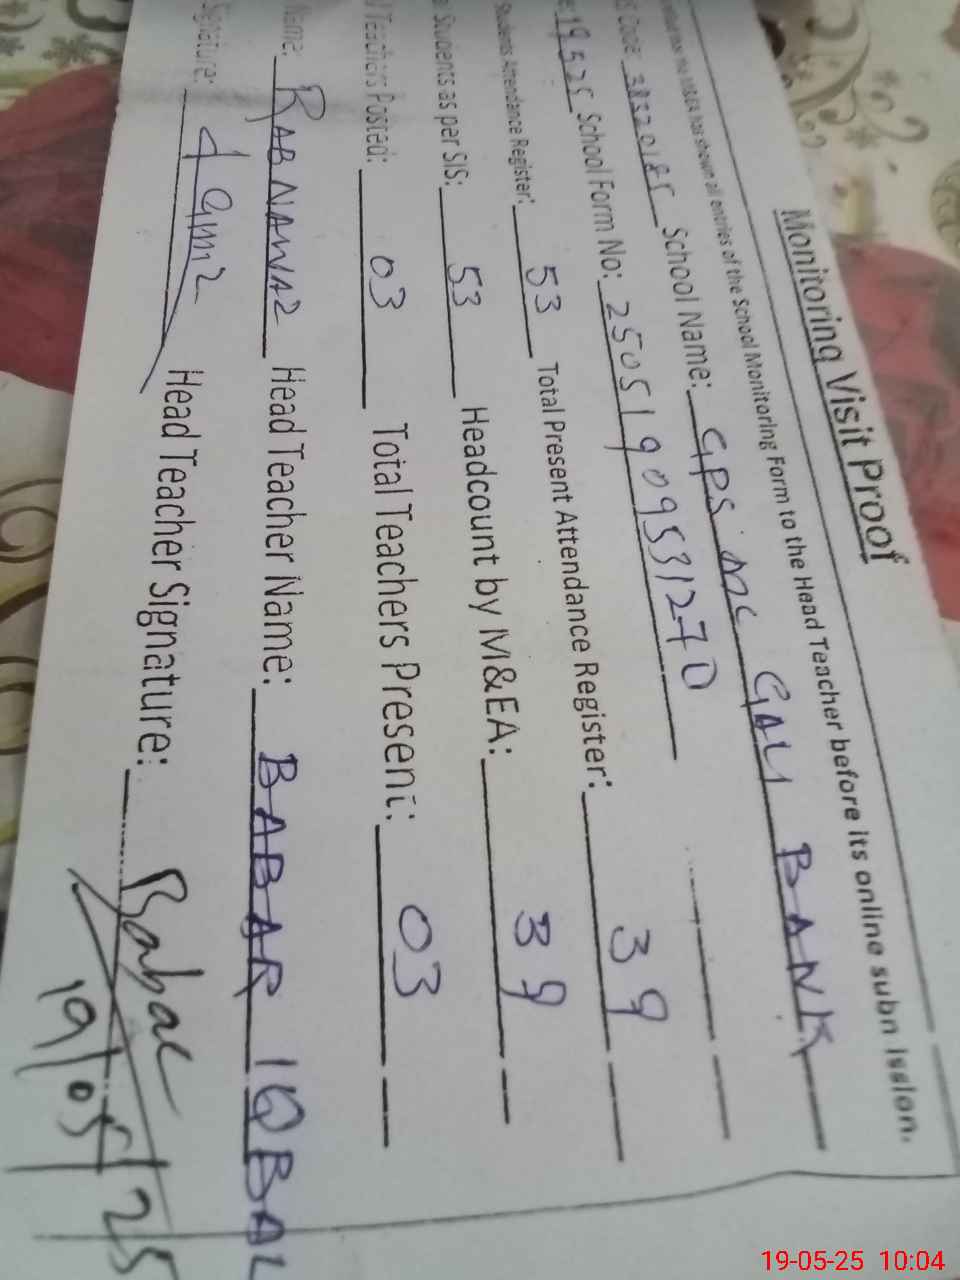 Monitoring Visit Proof
has shown all entries of the School Monitoring Form to the Head Teacher before its online subn ission.
Code: 38320185 School Name: GPS MC GALI BANK
19 5 25 School Form No: 25051909531270
Students Attendance Register: 53 Total Present Attendance Register: 39
Students as per SIS: 53 Headcount by M&EA: 39
Teachers Posted: 03 Total Teachers Present: 03
Name: RABNAWAZ Head Teacher Name: BABAR IQBAL
Signature: Head Teacher Signature: Babar
19/05/25
19-05-25 10:04